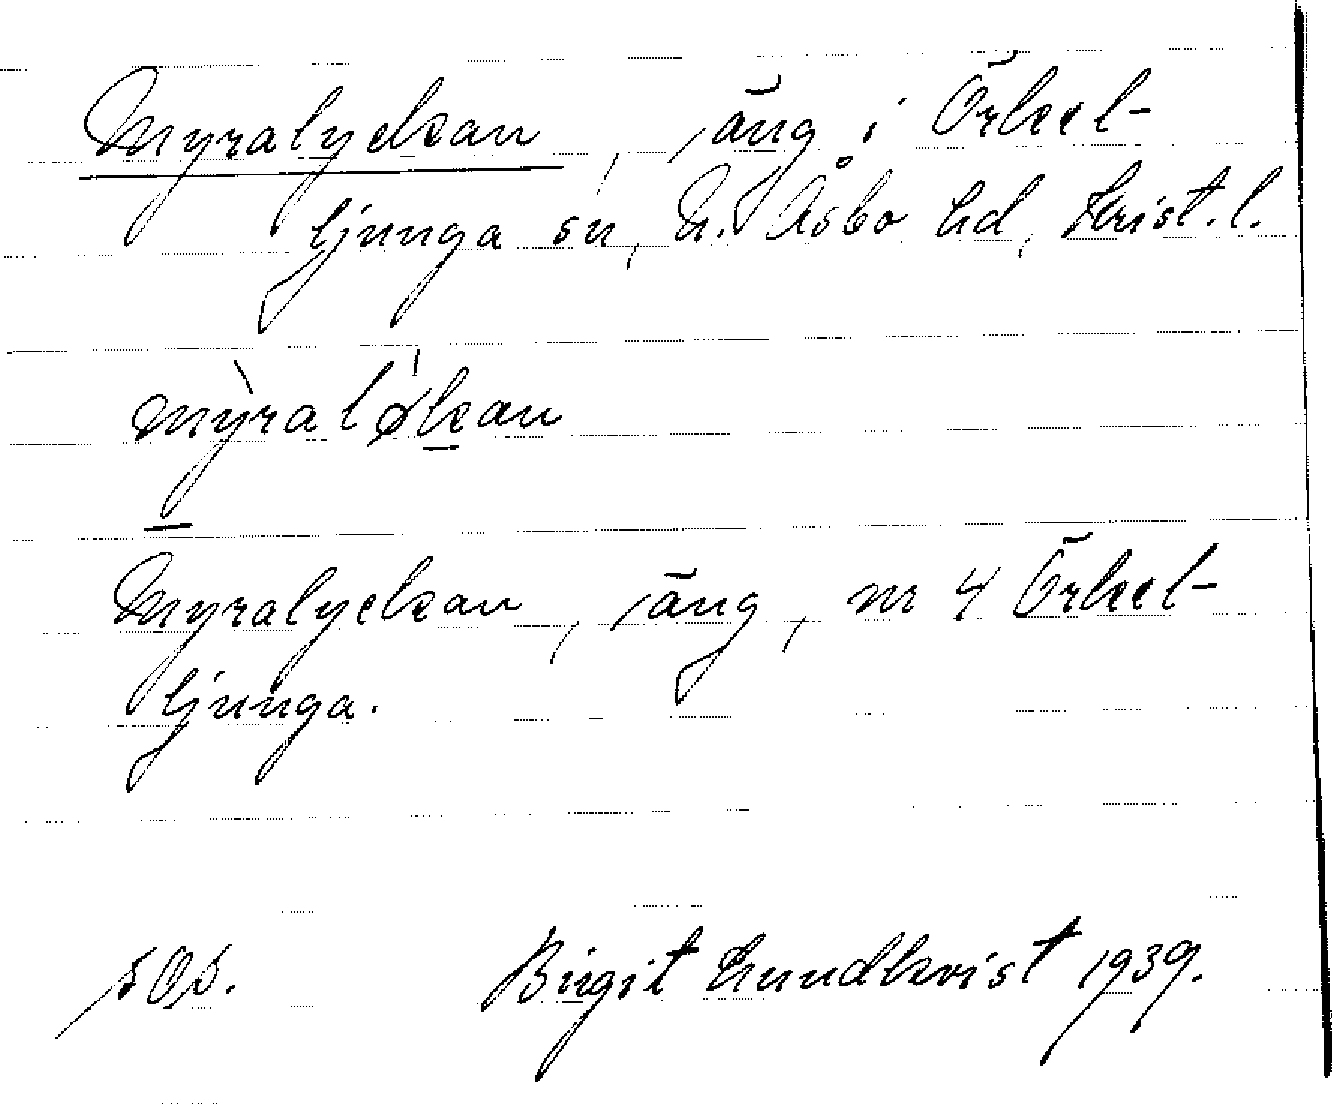 Myralyckan, äng i Örkel-
ljunga sn, N. Åsbo hd, Krist. l.
mỳralǿkan
Myralyckan, äng, nr 4 Örkel-
ljunga.
Birgit Lundkvist 1939.